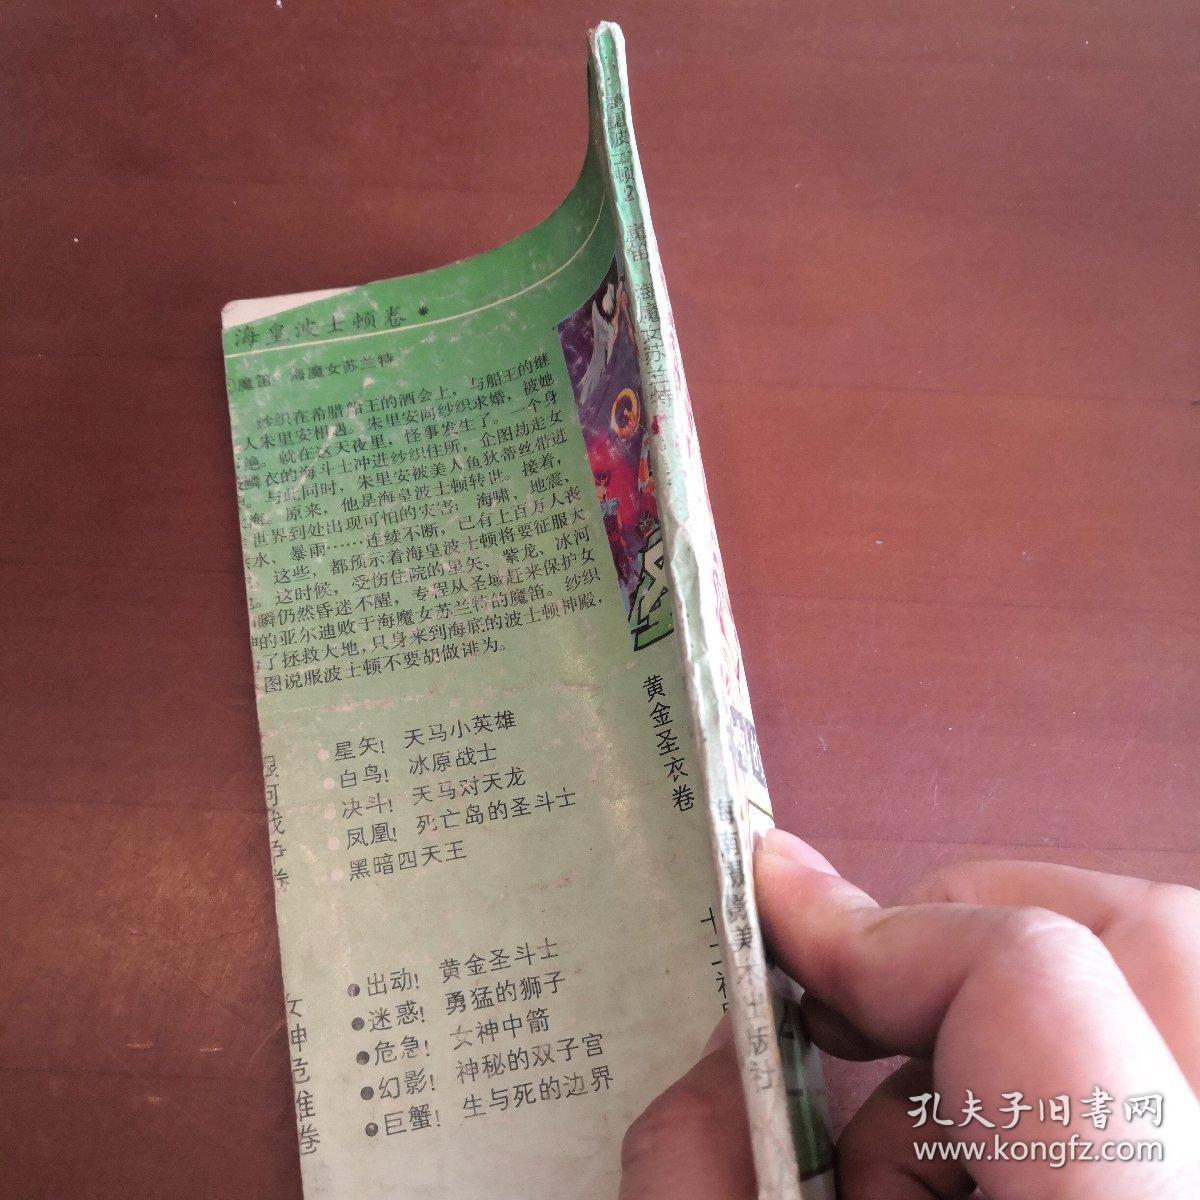 海皇波士顿卷 *
魔笛! 海魔女苏兰特
纱织在希腊船王的酒会上，与船王的继
人朱里安相遇。朱里安向纱织求婚，被她
绝。就在这天夜里，怪事发生了。一个身
鳞衣的海斗士冲进纱织住所，企图劫走女
与此同时，朱里安被美人鱼狄蒂丝带进
海。原来，他是海皇波士顿转世。接着，
世界到处出现可怕的灾害；海啸、地震、
水、暴雨……连续不断，已有上百万人丧
这些，都预示着海皇波士顿将要征服大
。这时候，受伤住院的星矢、紫龙、冰河
瞬仍然昏迷不醒，专程从圣域赶来保护女
的亚尔迪败于海魔女苏兰特的魔笛。纱织
了拯救大地，只身来到海底的波士顿神殿，
图说服波士顿不要胡做诽为。
银河战争卷
●星矢! 天马小英雄
●白鸟! 冰原战士
●决斗! 天马对天龙
●凤凰! 死亡岛的圣斗士
黑暗四天王
黄金圣衣卷
女神危难卷
●出动! 黄金圣斗士
●迷惑! 勇猛的狮子
●危急! 女神中箭
●幻影! 神秘的双子宫
●巨蟹! 生与死的边界
十二
海皇波士顿2 魔笛 海魔女苏兰特
海南摄影美术出版社
孔夫子旧书网
www.kongfz.com